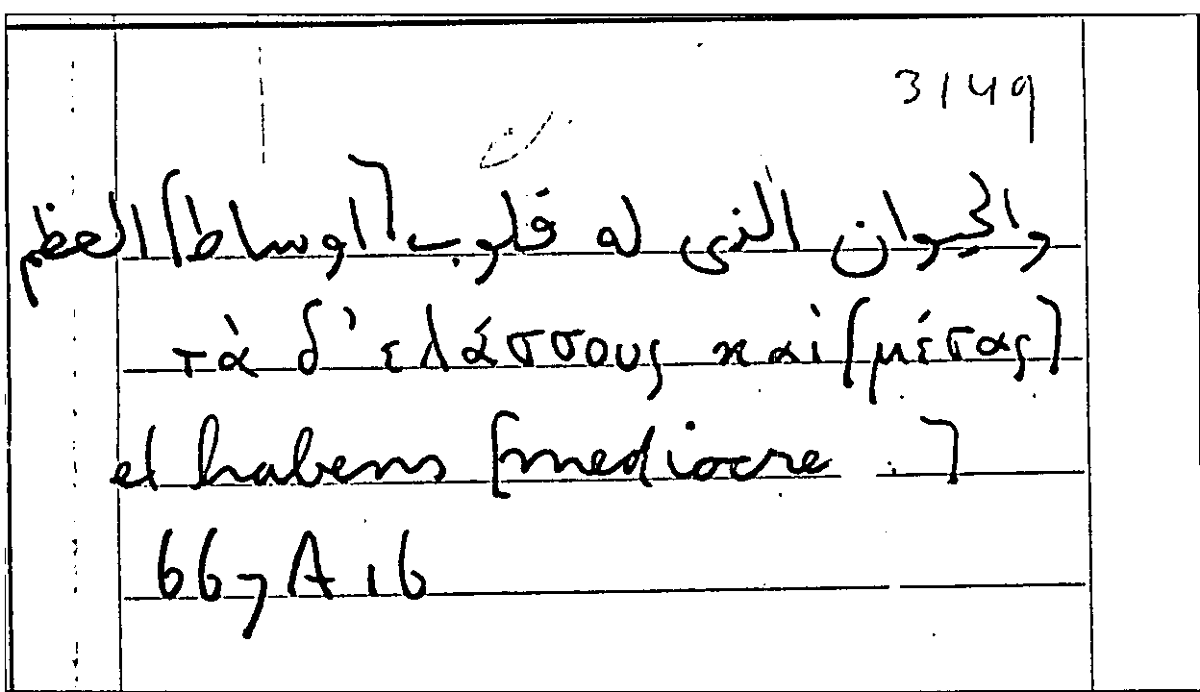 3149
والحيوان الذى له قلوب [اوساط] العظم
τὰ δ' ἐλάσσους καὶ [μέσας]
et habens [mediocre]
667A16